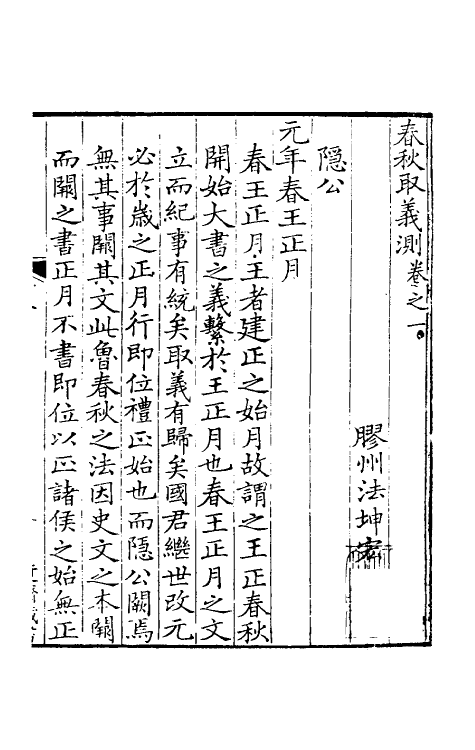 春秋取義測卷之一
膠州法坤宏
隱公
元年春王正月
春王正月王者建正之始月故謂之王正春秋
開始大書之義繫於王正月也春王正月之文
立而紀事有統矣取義有歸矣國君繼世改元
必於歲之正月行卽位禮正始也而隱公闕焉
無其事闕其文此魯春秋之法因史文之本闕
而闕之書正月不書卽位以正諸侯之始無正